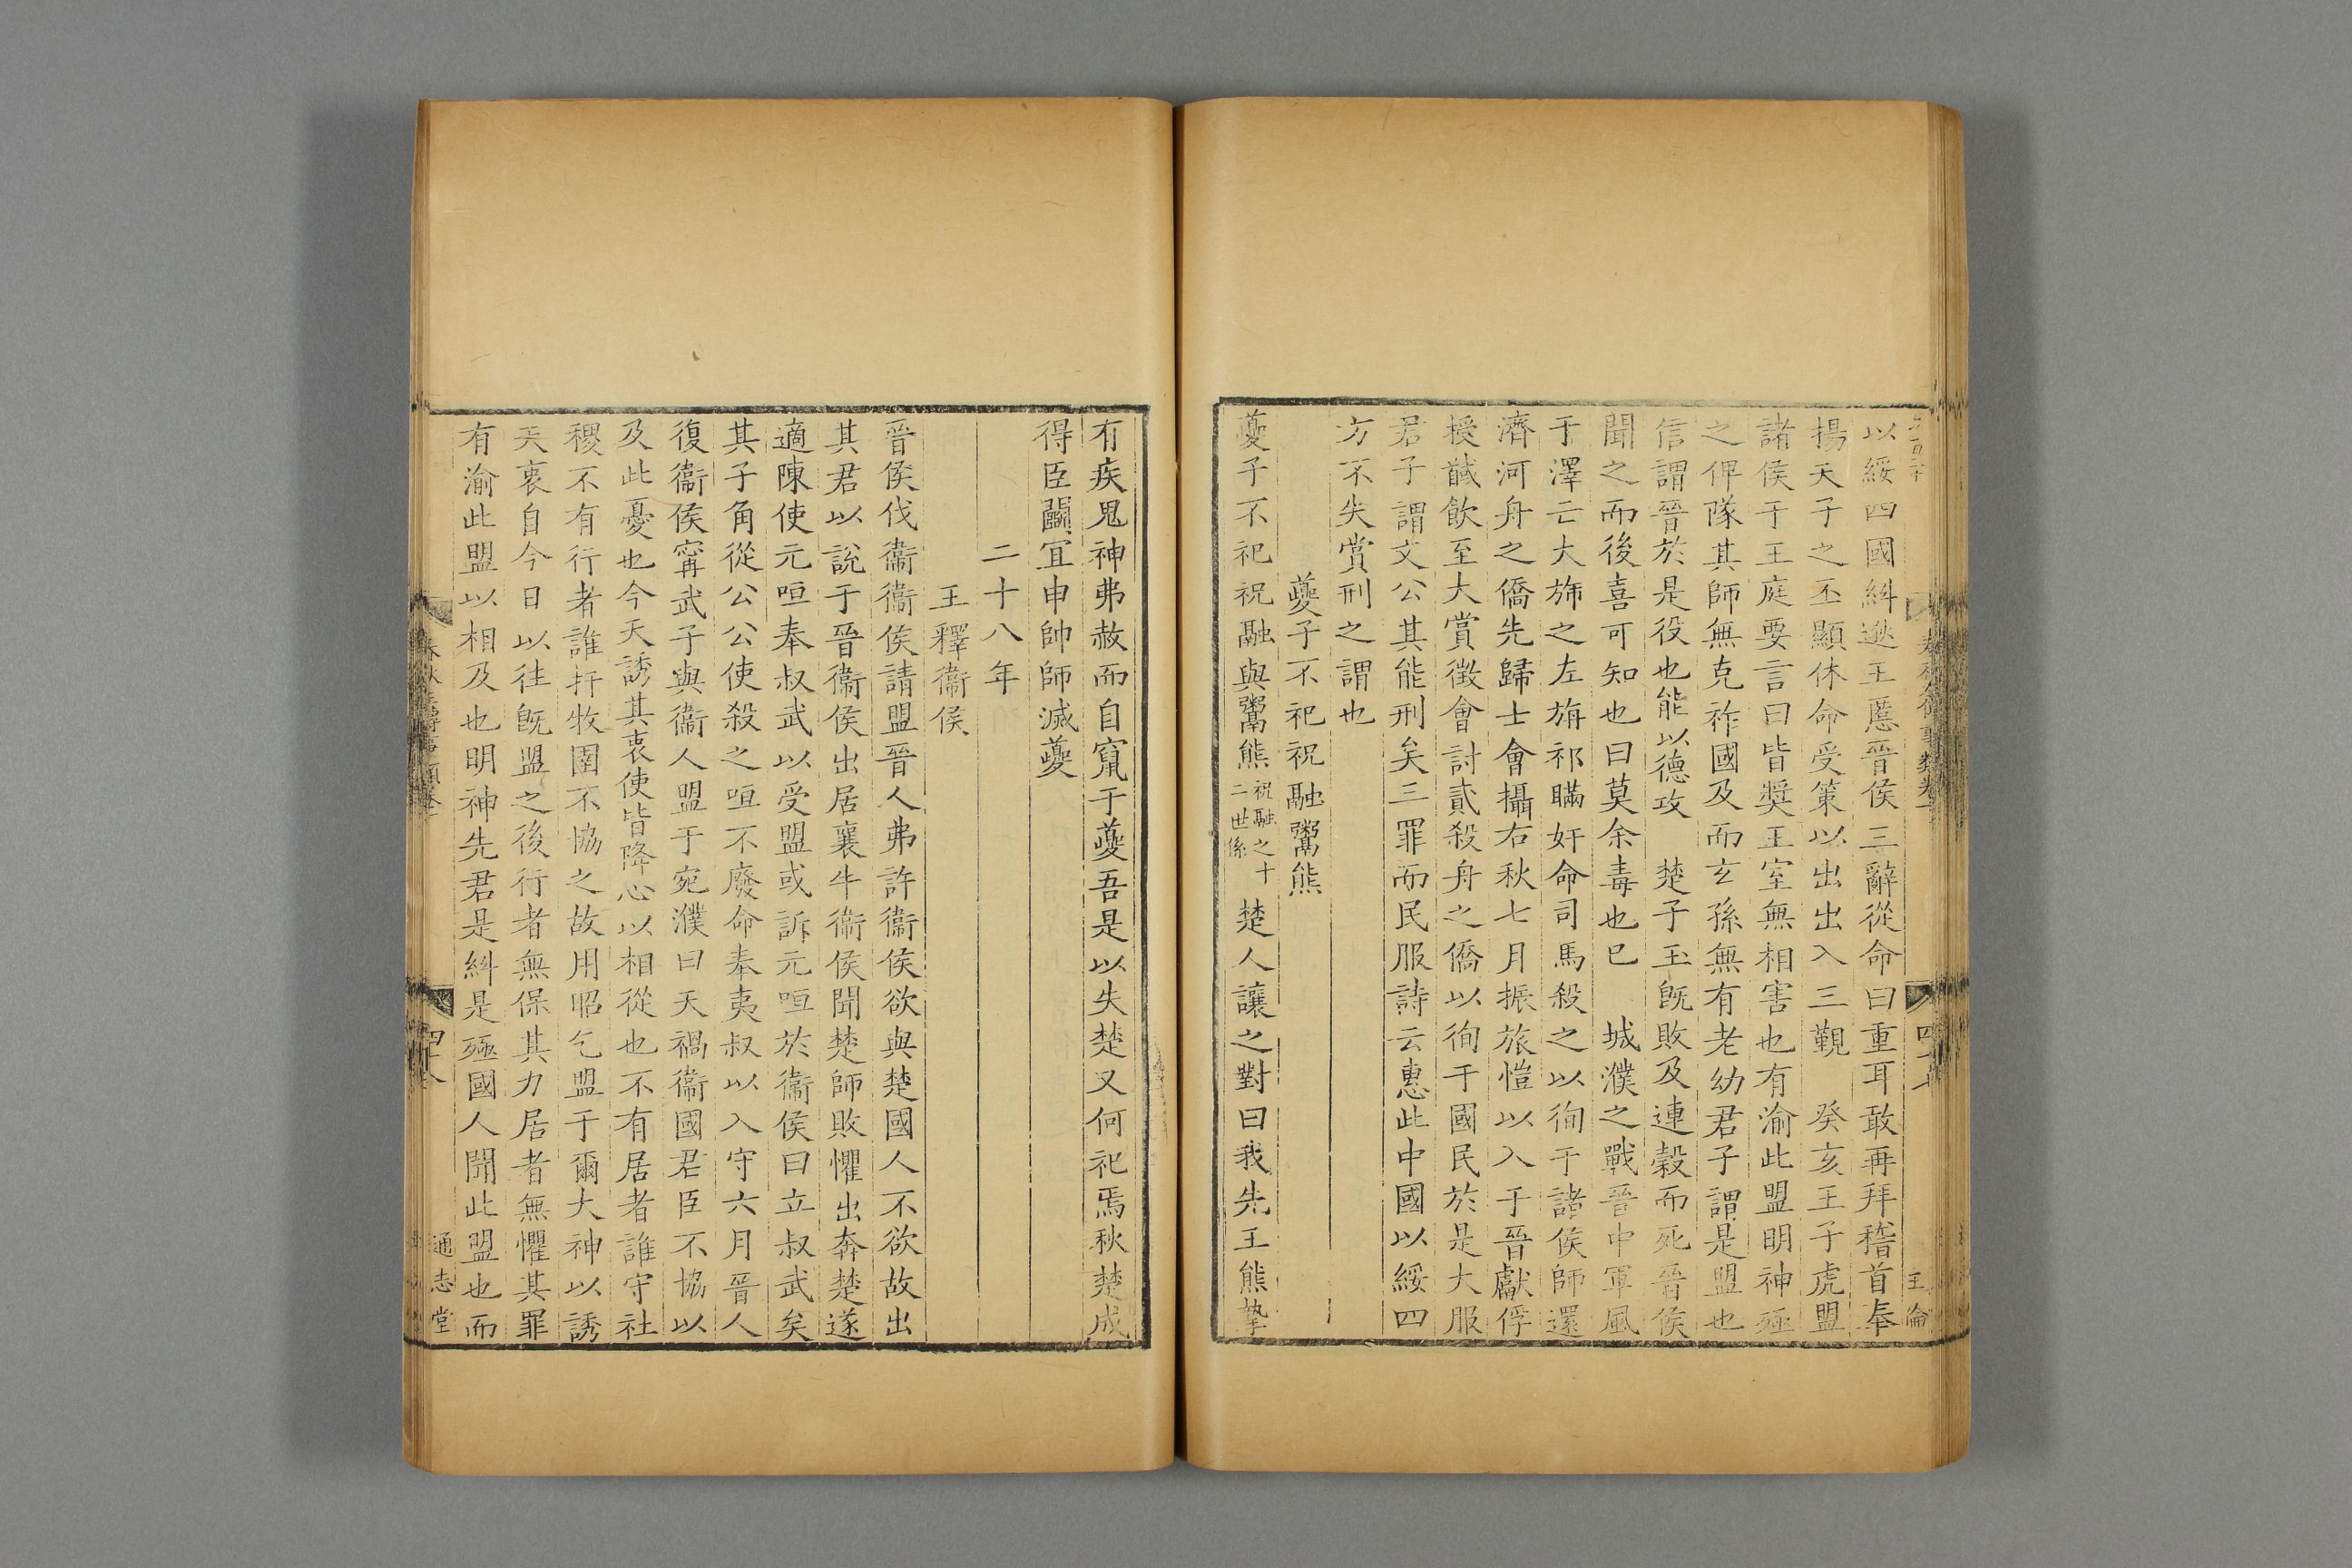 以綏四國糾逖王慝晉侯三辭從命曰重耳敢再拜稽首奉
揚天子之丕顯休命受策以出出入三覲　癸亥王子虎盟
諸侯于王庭要言曰皆奬王室無相害也有渝此盟明神殛
之俾隊其師無克祚國及而玄孫無有老幼君子謂是盟也
信謂晉於是役也能以德攻　楚子玉旣敗及連穀而死晉侯
聞之而後喜可知也曰莫余毒也巳　城濮之戰晉中軍風
于澤亡大旆之左旃祁瞞奸命司馬殺之以徇于諸侯師還
濟河舟之僑先歸士會攝右秋七月振旅愷以入于晉獻俘
授馘飲至大賞徵會討貳殺舟之僑以徇于國民於是大服
君子謂文公其能刑矣三罪而民服詩云惠此中國以綏四
方不失賞刑之謂也
夔子不祀祝融鬻熊
夔子不祀祝融與鬻熊祝融之十二世孫　楚人讓之對曰我先王熊摯
王倫
有疾鬼神弗赦而自竄于夔吾是以失楚又何祀焉秋楚成
得臣鬬宜申帥師滅夔
二十八年
王釋衞侯
晉侯伐衞衞侯請盟晉人弗許衞侯欲與楚國人不欲故出
其君以說于晉衞侯出居襄牛衞侯聞楚師敗懼出奔楚遂
適陳使元咺奉叔武以受盟或訴元咺於衞侯曰立叔武矣
其子角從公公使殺之咺不廢命奉夷叔以入守六月晉人
復衞侯甯武子與衞人盟于宛濮曰天禍衞國君臣不協以
及此憂也今天誘其衷使皆降心以相從也不有居者誰守社
稷不有行者誰扞牧圉不協之故用昭乞盟于爾大神以誘
天衷自今日以往旣盟之後行者無保其力居者無懼其罪
有渝此盟以相及也明神先君是糾是殛國人聞此盟也而
通志堂